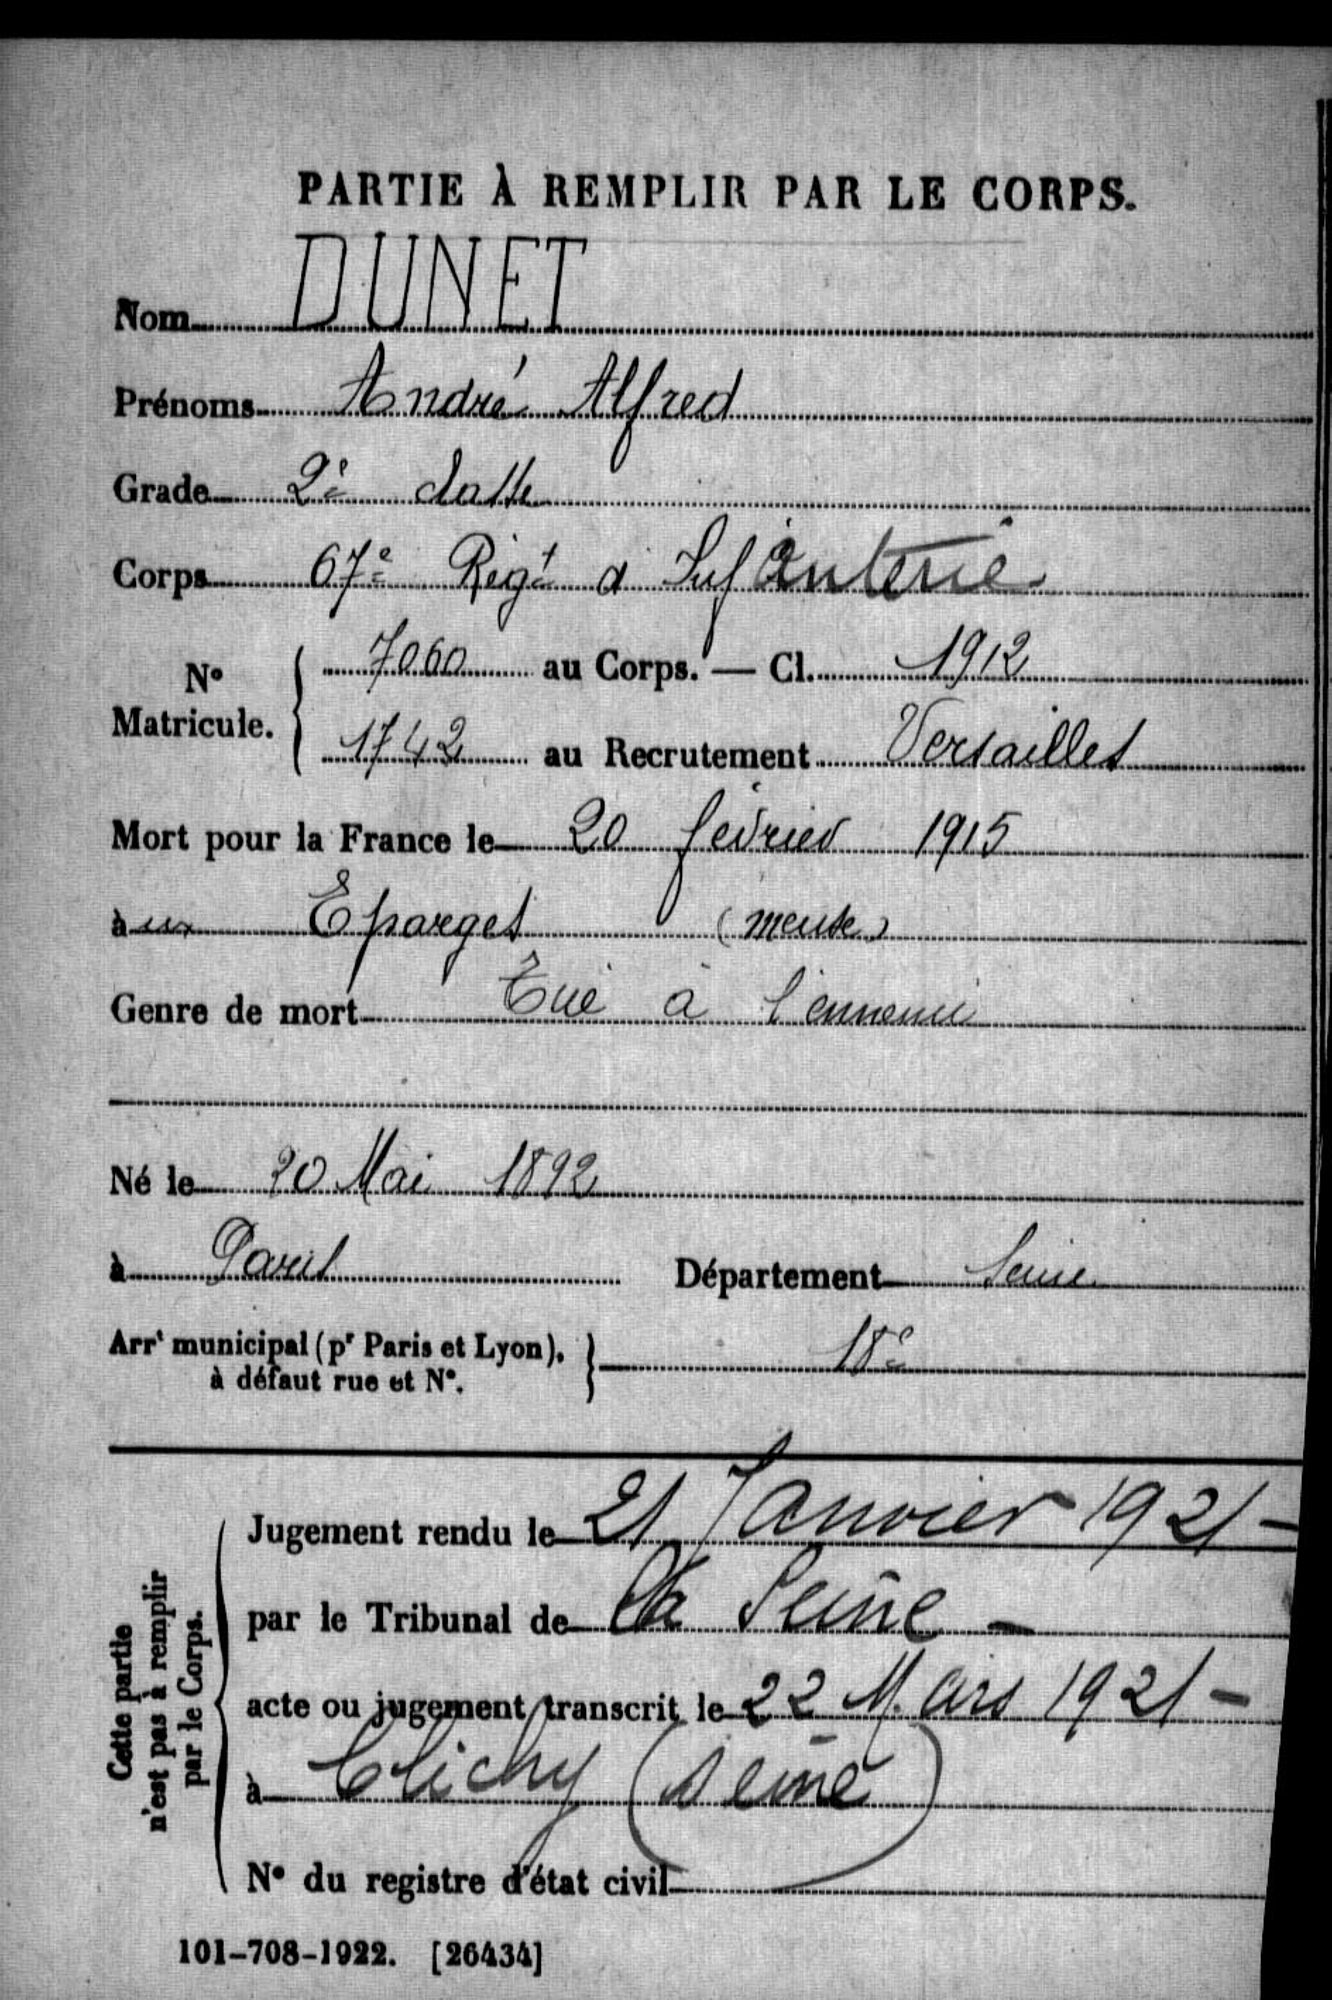 PARTIE À REMPLIR PAR LE CORPS.
Nom DUNET
Prénoms André Alfred
Grade 2e classe
Corps 67e Régt d Infanterie
No Matricule. 7060 au Corps. — Cl. 1912
1742 au Recrutement Versailles
Mort pour la France le 20 février 1915
à ux Eparges (meuse)
Genre de mort Tué à l'ennemi
Né le 20 Mai 1892
à Paris Département Seine
Arrt municipal (pr Paris et Lyon), à défaut rue et No. 18e
Cette partie n'est pas à remplir par le Corps.
Jugement rendu le 21 Janvier 1921 -
par le Tribunal de la Seine -
acte ou jugement transcrit le 22 Mars 1921 -
à Clichy (Seine)
No du registre d'état civil
101-708-1922. [26434]